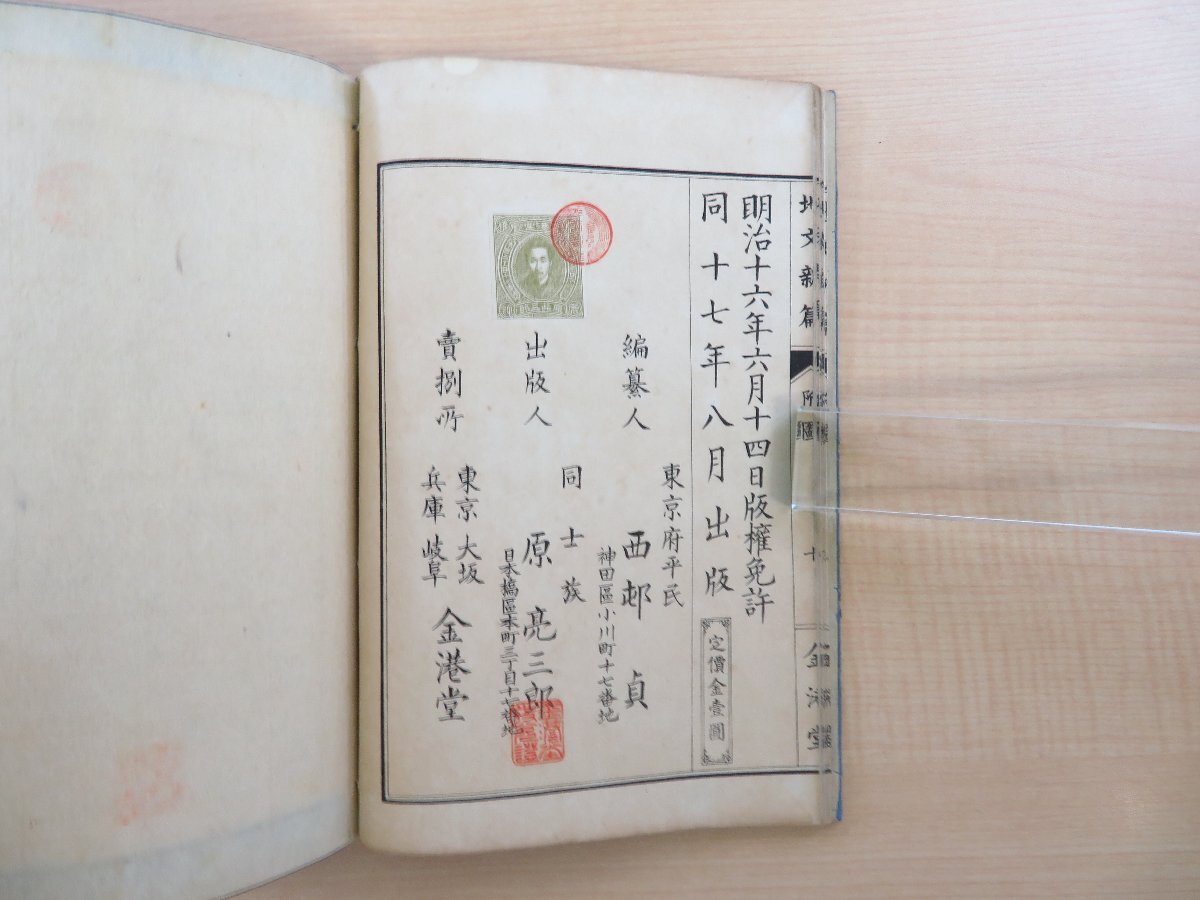 地文新篇
附圖
十
金港堂
明治十六年六月十四日版權免許
同十七年八月出版
定價金壹圓
東京府平民
編纂人 西邨貞
神田區小川町十七番地
同士族
出版人 原亮三郎
日本橋區本町三丁目十七番地
東京 大坂
賣捌所
兵庫 岐阜
金港堂